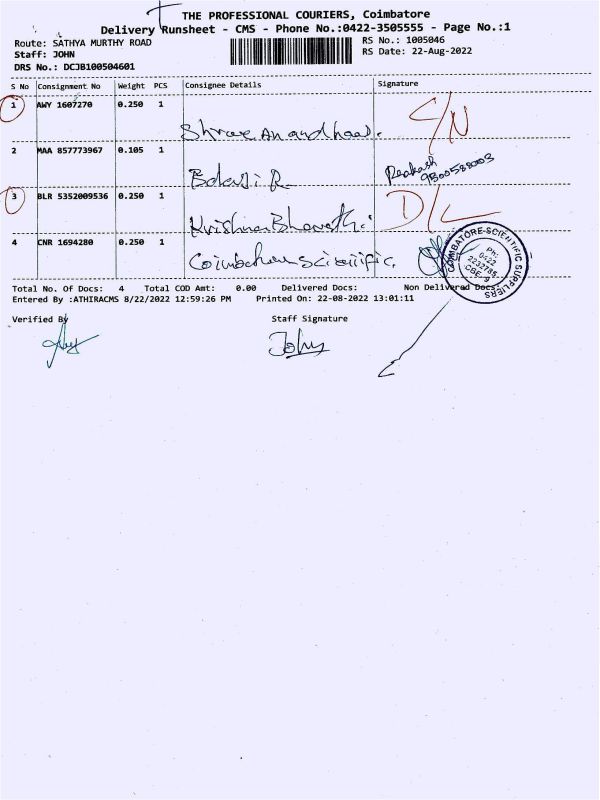 THE PROFESSIONAL COURIERS, Coimbatore
Delivery Runsheet - CMS - Phone No.:0422-3505555 - Page No.:1
Route: SATHYA MURTHY ROAD
RS No.: 1005046
Staff: JOHN
RS Date: 22-Aug-2022
DRS No.: DCJB100504601
S No Consignment No Weight PCS Consignee Details Signature
1 AWY 1607270 0.250 1
C/N
2 MAA 857773967 0.105 1
Balaji R
Prakash
3 BLR 5352009536 0.250 1
D/L
Krishna Bharathi
4 CNR 1694280 0.250 1
COIMBATORE-SCIENTIFIC SUPPLIERS
PH:
0422
CBE-9
Total No. Of Docs: 4 Total COD Amt: 0.00 Delivered Docs: Non Delivered Docs:
Entered By :ATHIRACMS 8/22/2022 12:59:26 PM Printed On: 22-08-2022 13:01:11
Verified By Staff Signature
John